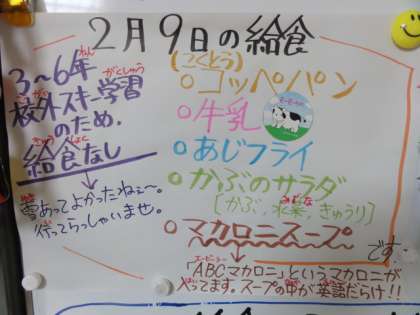 2月9日の給食
3〜6年
校外スキー学習
のため、
給食なし
雪あってよかったねぇ〜。
行ってらっしゃいませ。
(こくとう)
○コッペパン
○牛乳
○あじフライ
○かぶのサラダ
[かぶ、水菜、きゅうり]
○マカロニスープ
です
「ABCマカロニ」というマカロニが
入ってます。スープの中が英語だらけ!!